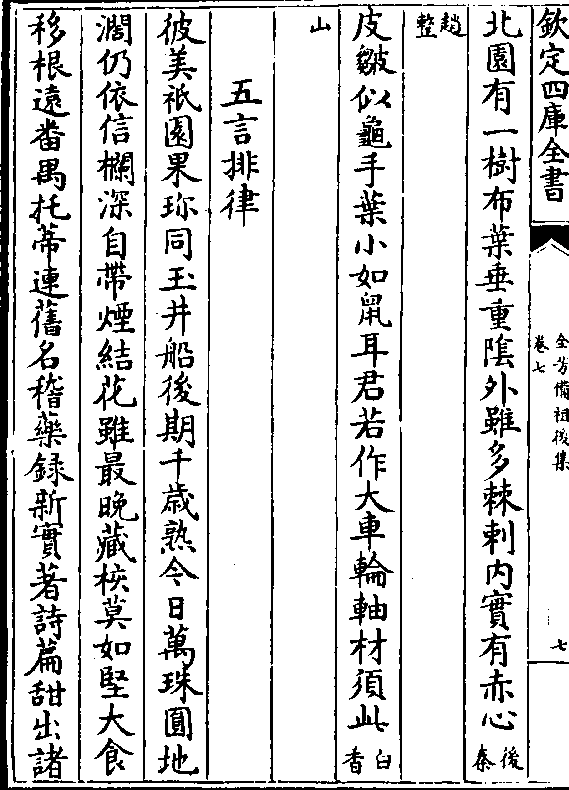 欽定四庫全書
全芳備祖後集
卷七
七
北園有一樹布葉垂重隂外雖多棘刺内實有赤心後秦
趙整
皮皺似龜手葉小如鼠耳君若作大車輪軸材須此白香
山
五言排律
彼美祇園果珎同玉井船後期千歳熟今日萬珠圓地
濶仍依信欄深自帶煙結花雖最晚藏核莫如堅大食
移根逺番禺托蔕連舊名稽藥録新實著詩篇甜出諸